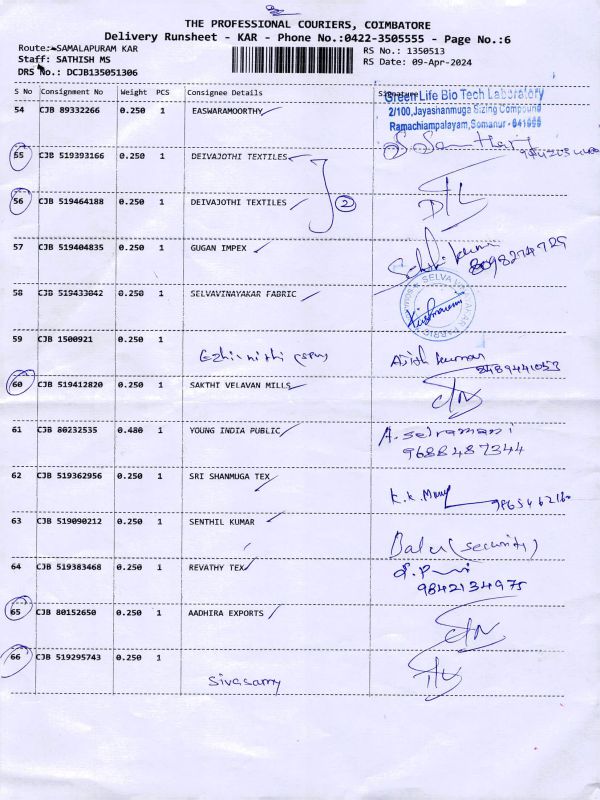 THE PROFESSIONAL COURIERS, COIMBATORE
Delivery Runsheet - KAR - Phone No.:0422-3505555 - Page No.:6
Route: SAMALAPURAM KAR
RS No.: 1350513
Staff: SATHISH MS
RS Date: 09-Apr-2024
DRS No.: DCJB135051306
S No Consignment No Weight PCS Consignee Details Signature
Green Life Bio Tech Laboratory
2/100, Jayashanmuga Sizing Compound
Ramachiampalayam, Somanur - 641668
54 CJB 89332266 0.250 1 EASWARAMOORTHY
55 CJB 519393166 0.250 1 DEIVAJOTHI TEXTILES
56 CJB 519464188 0.250 1 DEIVAJOTHI TEXTILES 2
57 CJB 519404835 0.250 1 GUGAN IMPEX 8098274725
58 CJB 519433042 0.250 1 SELVAVINAYAKAR FABRIC
59 CJB 1500921 0.250 1
Ajith kumar
8489441053
60 CJB 519412820 0.250 1 SAKTHI VELAVAN MILLS
61 CJB 80232535 0.480 1 YOUNG INDIA PUBLIC A. selvamani
9688487344
62 CJB 519362956 0.250 1 SRI SHANMUGA TEX
K.K. 
63 CJB 519090212 0.250 1 SENTHIL KUMAR
Balu (security)
64 CJB 519383468 0.250 1 REVATHY TEX
9842134975
65 CJB 80152650 0.250 1 AADHIRA EXPORTS
66 CJB 519295743 0.250 1
Sivasamy